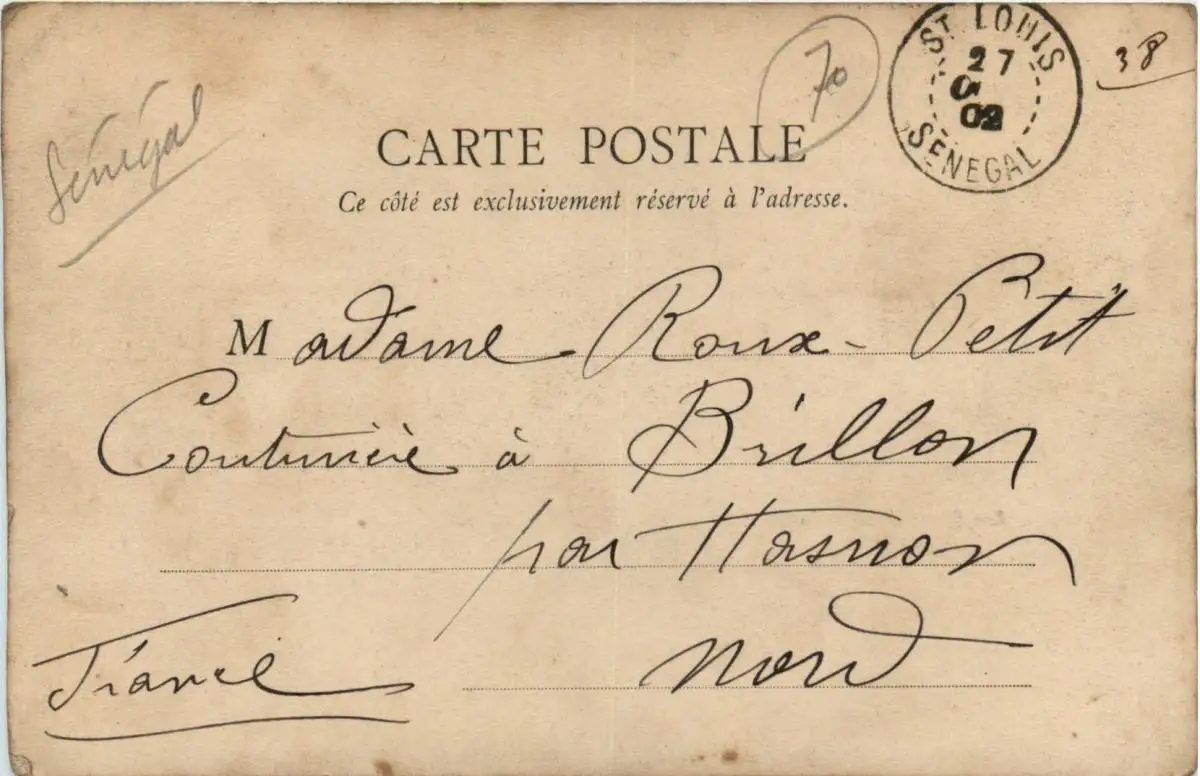 Sénégal
70
38
ST LOUIS
27
02
SENEGAL
CARTE POSTALE
Ce côté est exclusivement réservé à l'adresse.
Madame Roux-Petit
Couturière à Brillon
par Hasnon
Nord
France